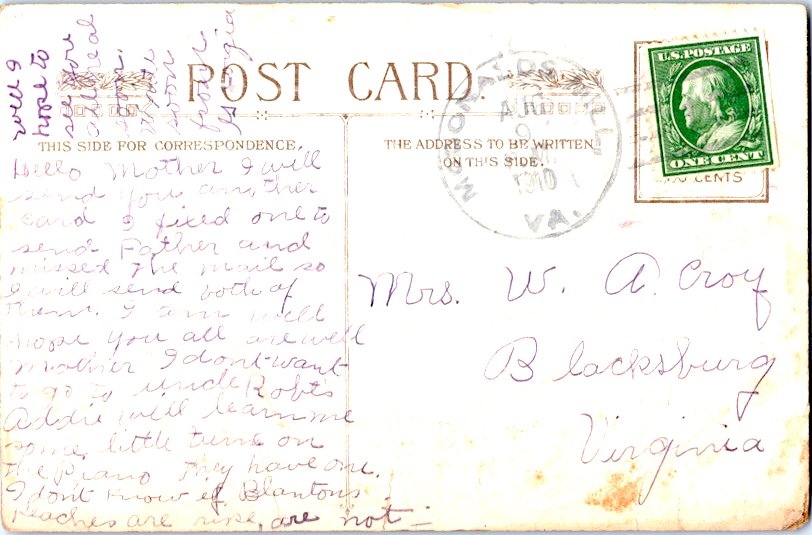 POST CARD.
THIS SIDE FOR CORRESPONDENCE.
THE ADDRESS TO BE WRITTEN
ON THIS SIDE.
U.S. POSTAGE
ONE CENT
CENTS
McDONALDS MILL
9
1910
VA.
Mrs. W. A. Croy
Blacksburg
Virginia
Hello Mother I will
send you another
card I fixed one to
send Father and
missed the mail so
I will send both of
them. I am well
hope you all are well
Mother I dont want
to go to uncle Robts
Addie will learn me
some little tune on
the piano they have one.
I dont know if Blantons
Peaches are ripe, are not
well I
hope to
see you
all real
soon.
Write
soon
from
Georgia